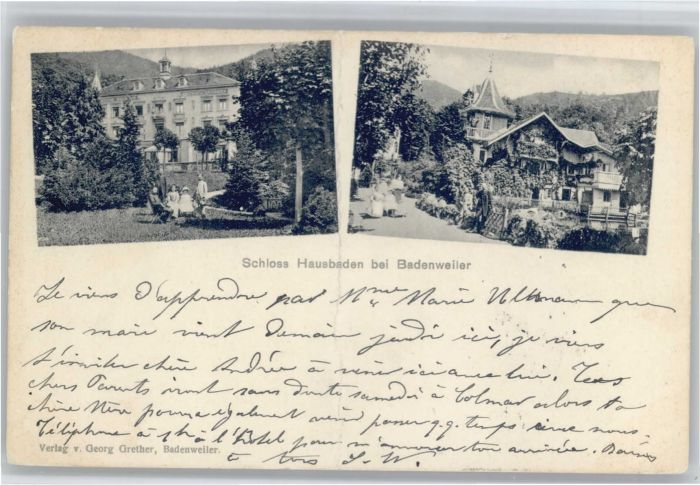 Schloss Hausbaden bei Badenweiler
Je viens d'apprendre par Mme Marie Ullmann que
son mari vient demain jeudi ici, je viens
t'inviter chère Andrée à venir ici avec lui. Tes
chers Parents iront sans doute samedi à Colmar alors ta
chère Mère pourra également venir passer q.q. temps avec nous.
Téléphone à l'hôtel pour m'annoncer ton arrivée. Baisers
Verlag v. Georg Grether, Badenweiler.
à tous J. W.